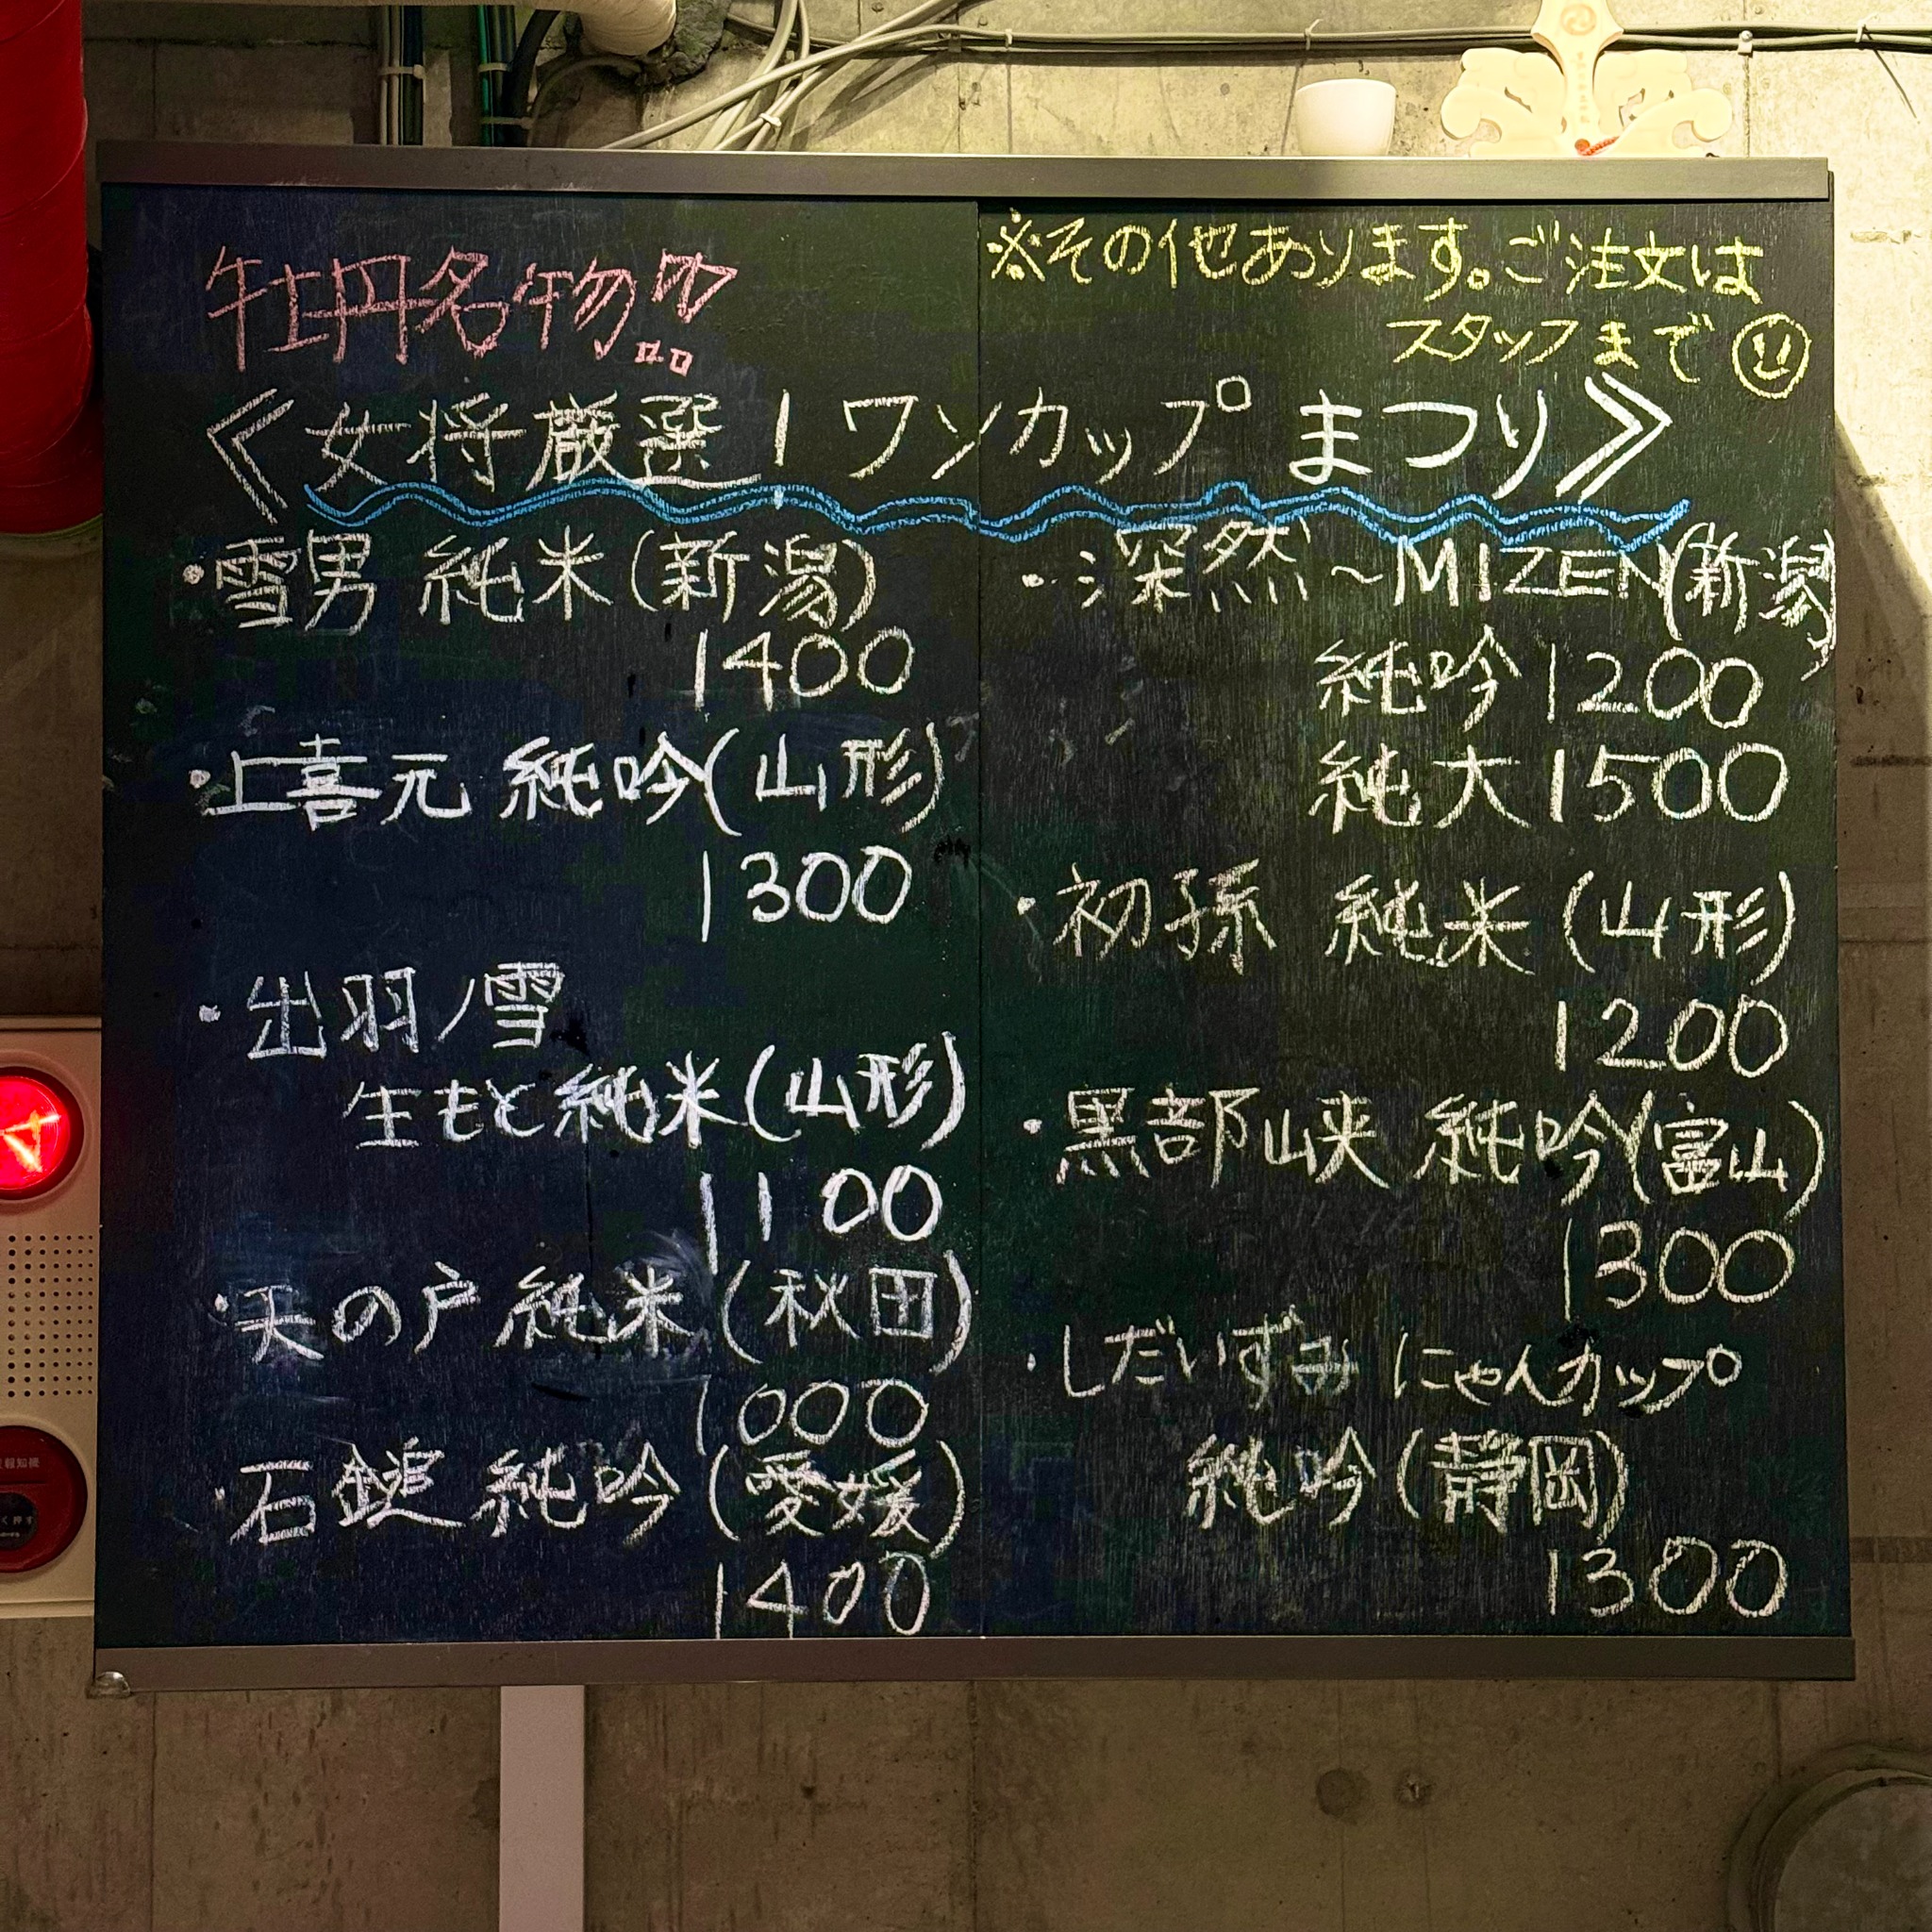 牡丹名物!!
※その他あります。ご注文は
スタッフまで
《女将厳選!ワンカップ まつり》
・雪男 純米(新潟)
1400
・上喜元 純吟(山形)
1300
・出羽ノ雪
生もと純米(山形)
1100
・天の戸 純米(秋田)
1000
・石鎚 純吟(愛媛)
1400
・深然~MIZEN(新潟)
純吟 1200
純大 1500
・初孫 純米(山形)
1200
・黒部峡 純吟(富山)
1300
・しだいずみ にゃんカップ
純吟(静岡)
1300
報知機
く押す